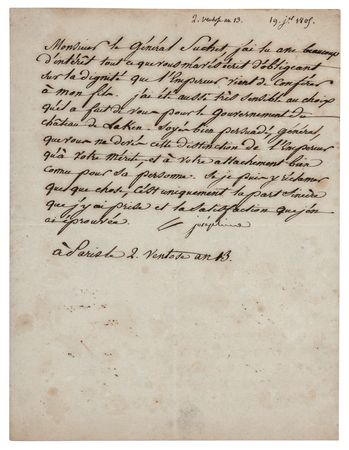 2. ventose an 13. 19. jer. 1805.
Monsieur le Général Suchet, j'ai lu avec beaucoup
d'intérêt tout ce que vous m'avés écrit d'obligeant
sur la dignité que l'Empereur vient de conférer
à mon fils. j'ai été aussi très sensible au choix
qu'il a fait de vous pour le Gouvernement du
château de Laken. Soyés bien persuadé, général,
que vous ne devés cette distinction de l'Empereur
qu'à votre mérite, et à votre attachement bien
connu pour sa personne. Si je puis y réclamer
quelque chose, c'est uniquement la part sincère
que j'y ai prise et la satisfaction que j'en
ai éprouvée.
joséphine
à Paris le 2. Ventose an 13.